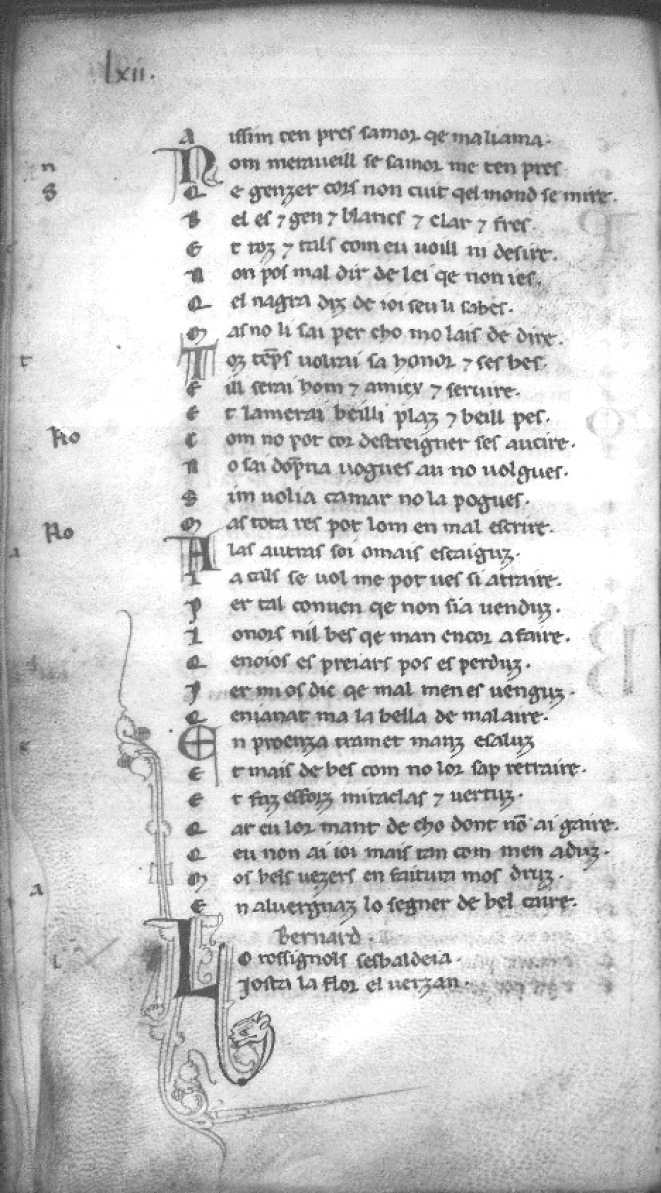 lxii.
A issim ten pres samor qe maliama.
N om meraueill se samor me ten pres
Q e genzer cors non cuit qel mond se mire.
B el es ⁊ gen ⁊ blancs ⁊ clar ⁊ fres.
E t toz ⁊ tals com eu uoill ni desire.
N on pos mal dir de lei qe non ies.
Q el nagra diz de ioi seu li sabes.
M as no li sai per cho mo lais de dire.
T oz tēps uolrai sa honor ⁊ ses bes.
E ill serai hom ⁊ amicx ⁊ seruire.
E t lamerai beilli plaz ⁊ beill pes.
C om no pot cor destreigner ses aucire.
N o sai dōpna uogues au no uolgues.
S im uolia camar no la pogues.
M as tota res pot lom en mal escrire.
A las autras soi omais escaiguz.
L a cals se uol me pot ues si atraire.
P er tal conuen qe non sia uenduz.
L onors nil bes qe man encor a faire.
Q enoios es preiars pos es perduz.
P er mi os dic qe mal men es uenguz.
Q enianat ma la bella de mal aire.
E n proenza tramet manz esaluz
E t mais de bes com no lor sap retraire.
E t faz esforz miraclas ⁊ uertuz.
Q ar eu lor mant de cho dont nō ai gaire.
Q eu non ai ioi mais tan com men aduz.
M os bels uezers en faitura mos druz.
E n aluergnaz lo segner de bel caire.
Bernard.
L o rossignols sesbaldeia.
Josta la flor el uerzan.
n
S
t
No
No
a
l